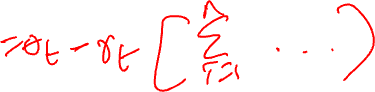 = θ_t - γ_t [ \sum_{i=1}^{n} ... )